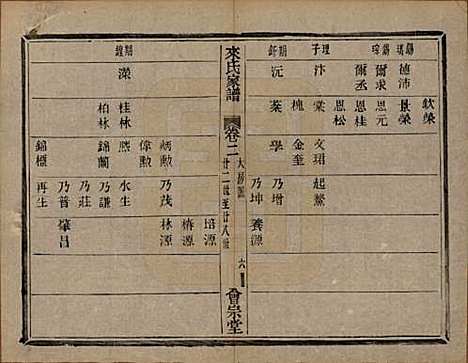 德沛 景榮
欽榮
爾求 恩元
爾丞 恩桂
恩松
理子
汴 棠 文珺 起鰲
槐 金奎
沅 葉 學 乃增
乃坤 養源
來氏家譜 卷二 大房 廿二世至廿八世 六 會宗堂
濚
桂林 熙 水生
柏林 錦蘭 乃謙
乃莊
炳勲 乃茂 林源
培源
椿源
偉勲
錦標 再生
乃普 肇昌